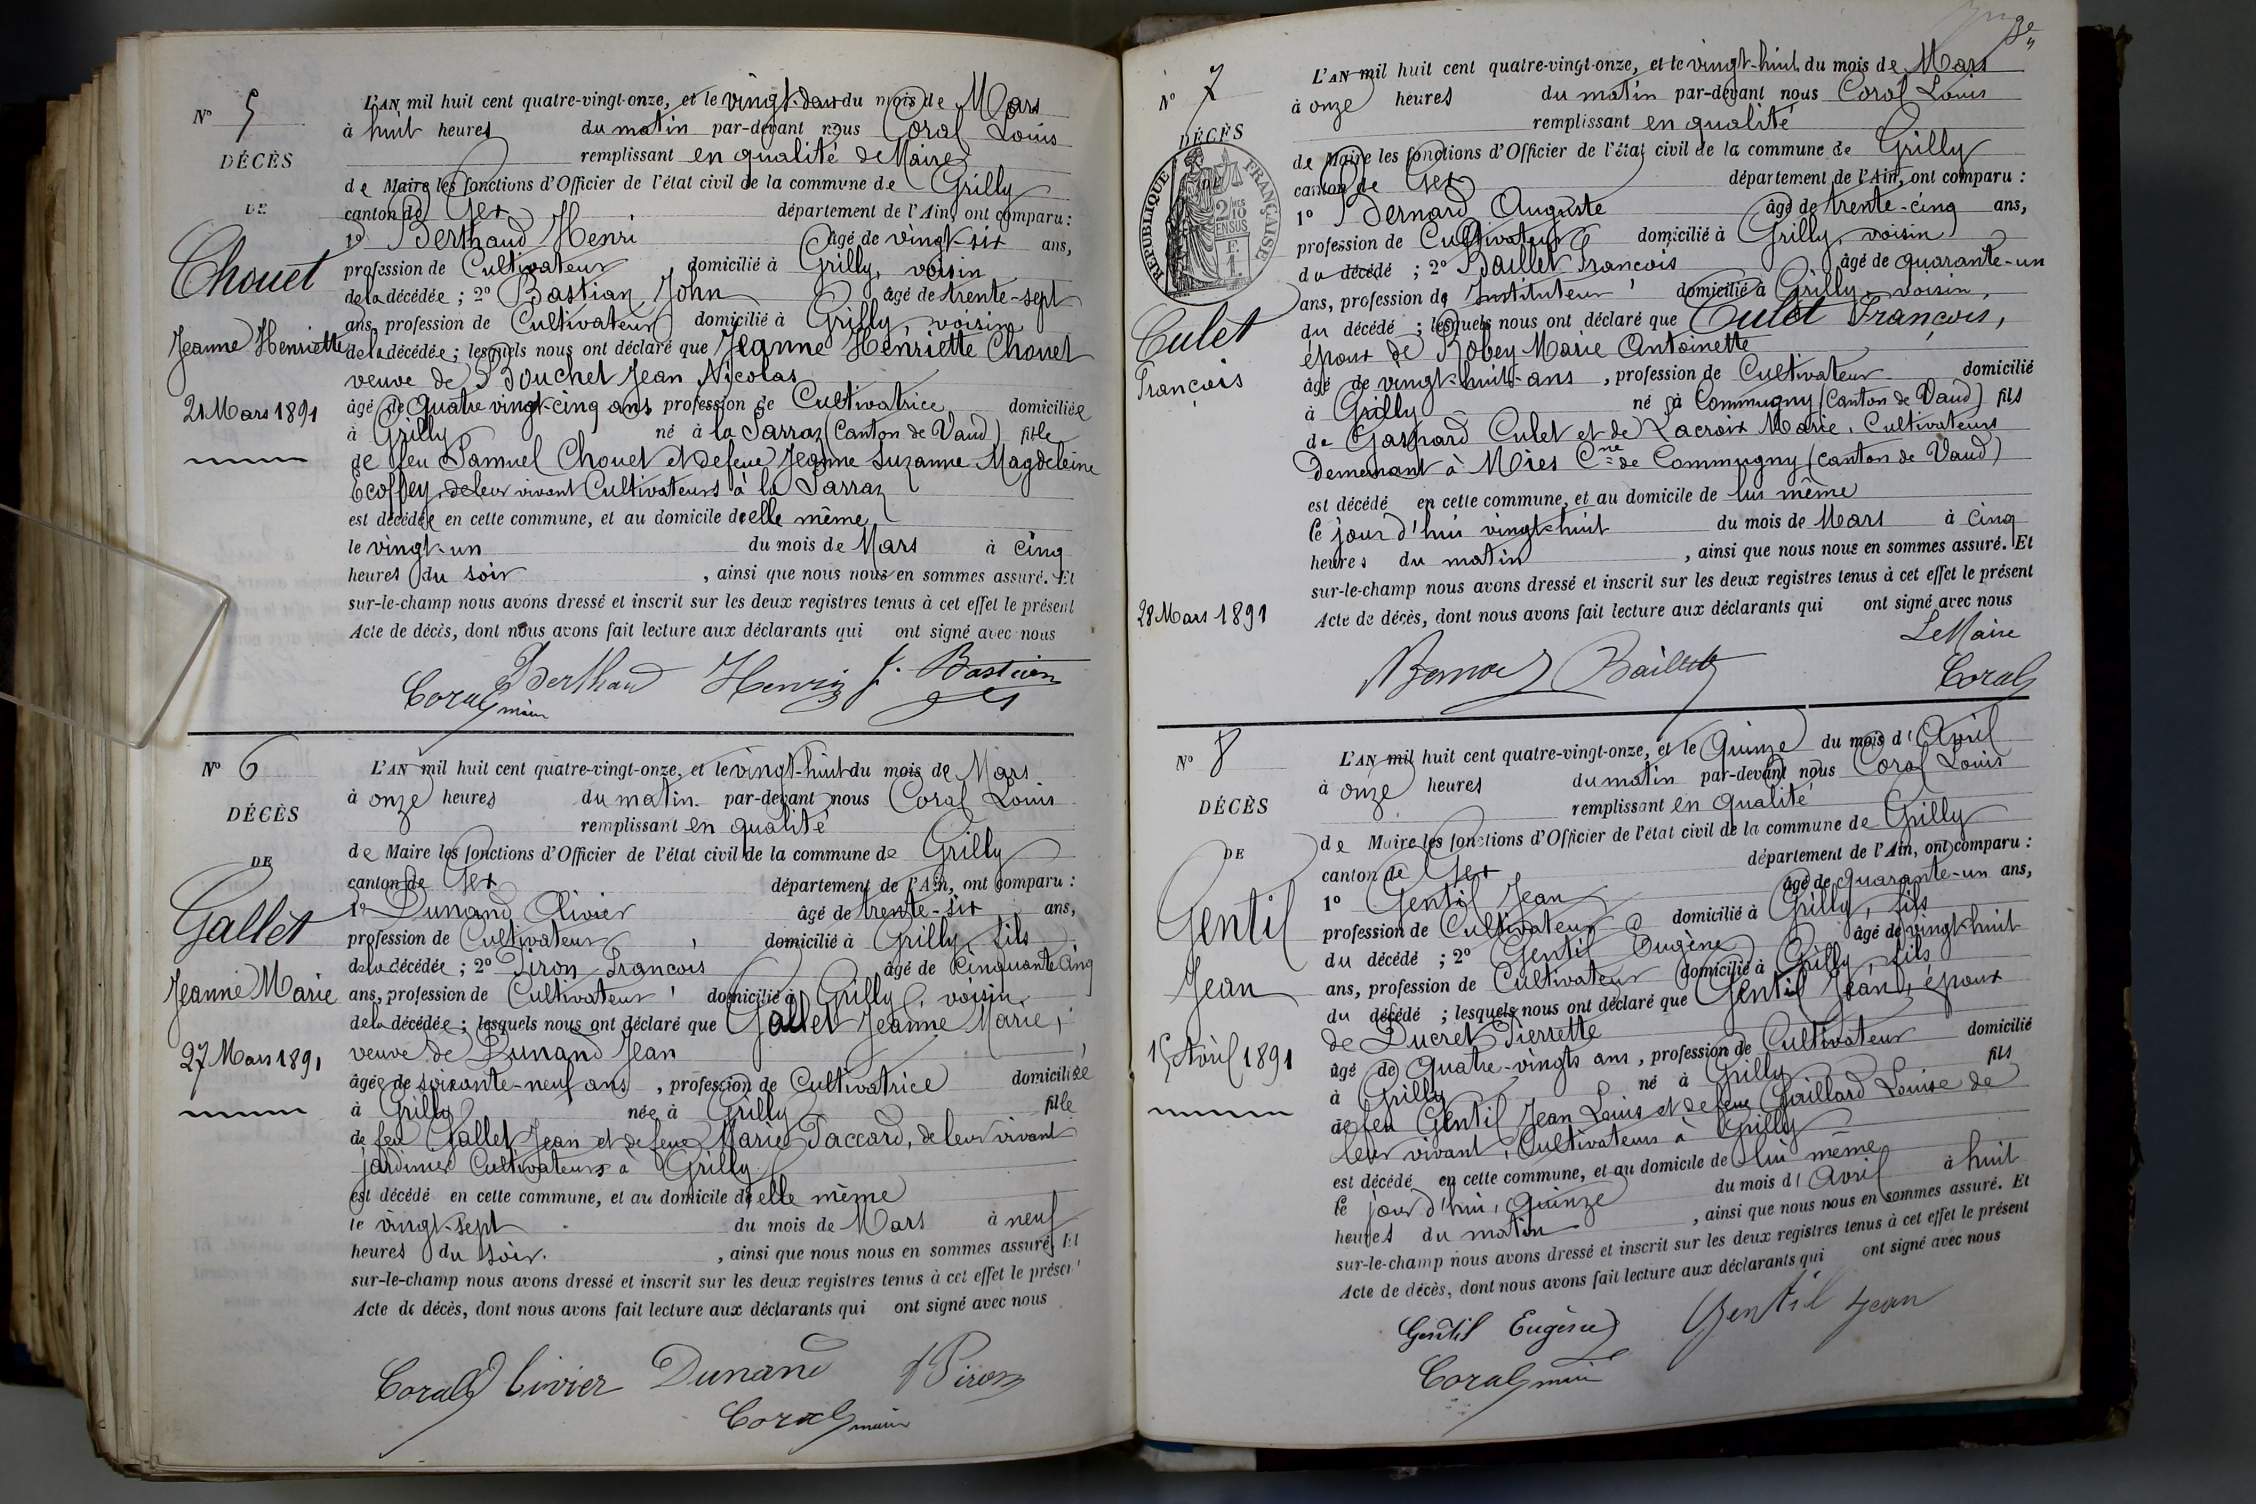 N° 5
DÉCÈS
DE
Chouet
Jeanne Henriette
21 Mars 1891
L'AN mil huit cent quatre-vingt-onze, et le vingt-deux du mois de Mars
à huit heures du matin par-devant nous Coral Louis
remplissant en qualité de Maire
de Maire les fonctions d'Officier de l'état civil de la commune de Grilly
canton de Gex département de l'Ain, ont comparu :
1° Berthaud Henri âgé de vingt-six ans,
profession de Cultivateur domicilié à Grilly, voisin
de la décédée ; 2° Bastian John âgé de trente-sept
ans, profession de Cultivateur domicilié à Grilly, voisin
de la décédée ; lesquels nous ont déclaré que Jeanne Henriette Chouet
veuve de Bouchet Jean Nicolas
âgé de quatre vingt-cinq ans, profession de Cultivatrice domiciliée
à Grilly né à la Sarraz (Canton de Vaud) fille
de feu Samuel Chouet et de feue Jeanne Suzanne Magdeleine
Ecoffey, de leur vivant Cultivateurs à la Sarraz
est décédée en cette commune, et au domicile d'elle même
le vingt-un du mois de Mars à cinq
heures du soir , ainsi que nous nous en sommes assuré. Et
sur-le-champ nous avons dressé et inscrit sur les deux registres tenus à cet effet le présent
Acte de décès, dont nous avons fait lecture aux déclarants qui ont signé avec nous
Berthaud Henri J. Bastian
Coral maire
N° 6
DÉCÈS
DE
Gallet
Jeanne Marie
27 Mars 1891
L'AN mil huit cent quatre-vingt-onze, et le vingt-huit du mois de Mars
à onze heures du matin par-devant nous Coral Louis
remplissant en qualité
de Maire les fonctions d'Officier de l'état civil de la commune de Grilly
canton de Gex département de l'Ain, ont comparu :
1° Dunand Olivier âgé de trente-six ans,
profession de Cultivateur , domicilié à Grilly, fils
de la décédée ; 2° Piron François âgé de cinquante cinq
ans, profession de Cultivateur , domicilié à Grilly, voisin
de la décédée ; lesquels nous ont déclaré que Gallet Jeanne Marie,
veuve de Dunand Jean ,
âgée de soixante-neuf ans , profession de Cultivatrice domiciliée
à Grilly née à Grilly fille
de feu Gallet Jean et de feue Marie Paccard, de leur vivant
jardinier Cultivateurs à Grilly
est décédé en cette commune, et au domicile d'elle même
le vingt-sept du mois de Mars à neuf
heures du soir. , ainsi que nous nous en sommes assuré. Et
sur-le-champ nous avons dressé et inscrit sur les deux registres tenus à cet effet le présent
Acte de décès, dont nous avons fait lecture aux déclarants qui ont signé avec nous
Coral Olivier Dunand Piron
Coral maire
N° 7
DÉCÈS
DE
RÉPUBLIQUE FRANÇAISE
2/10 EN SUS
F. 1.
Culet
François
28 Mars 1891
L'AN mil huit cent quatre-vingt-onze, et le vingt-huit du mois de Mars
à onze heures du matin par-devant nous Coral Louis
remplissant en qualité
de Maire les fonctions d'Officier de l'état civil de la commune de Grilly
canton de Gex département de l'Ain, ont comparu :
1° Bernard Auguste âgé de trente-cinq ans,
profession de Cultivateur domicilié à Grilly, voisin
du décédé ; 2° Baillet François âgé de quarante-un
ans, profession de Instituteur , domicilié à Grilly, voisin,
du décédé ; lesquels nous ont déclaré que Culet François,
époux de Robey Marie Antoinette
âgé de vingt-huit-ans , profession de Cultivateur domicilié
à Grilly né à Commugny (Canton de Vaud) fils
de Gaspard Culet et de Lacroix Marie, Cultivateurs
demeurant à Mies Cne de Commugny (canton de Vaud)
est décédé en cette commune, et au domicile de lui même
le jour d'hui vingt-huit du mois de Mars à cinq
heures du matin , ainsi que nous nous en sommes assuré. Et
sur-le-champ nous avons dressé et inscrit sur les deux registres tenus à cet effet le présent
Acte de décès, dont nous avons fait lecture aux déclarants qui ont signé avec nous
Le Maire
Bernard Baillet Coral
N° 8
DÉCÈS
DE
Gentil
Jean
15 Avril 1891
L'AN mil huit cent quatre-vingt-onze, et le Quinze du mois d'Avril
à onze heures du matin par-devant nous Coral Louis
remplissant en qualité
de Maire les fonctions d'Officier de l'état civil de la commune de Grilly
canton de Gex département de l'Ain, ont comparu :
1° Gentil Jean âgé de quarante-un ans,
profession de Cultivateur domicilié à Grilly, fils
du décédé ; 2° Gentil Eugène âgé de vingt-huit
ans, profession de Cultivateur domicilié à Grilly, fils
du décédé ; lesquels nous ont déclaré que Gentil Jean, époux
de Ducret Pierrette
âgé de Quatre-vingts ans , profession de Cultivateur domicilié
à Grilly né à Grilly fils
de feu Gentil Jean Louis et de feue Chaillard Louise de
leur vivant, Cultivateurs à Grilly
est décédé en cette commune, et au domicile de lui même
le jour d'hui, quinze du mois d'Avril à huit
heures du matin , ainsi que nous nous en sommes assuré. Et
sur-le-champ nous avons dressé et inscrit sur les deux registres tenus à cet effet le présent
Acte de décès, dont nous avons fait lecture aux déclarants qui ont signé avec nous
Gentil Eugène Gentil Jean
Coral maire